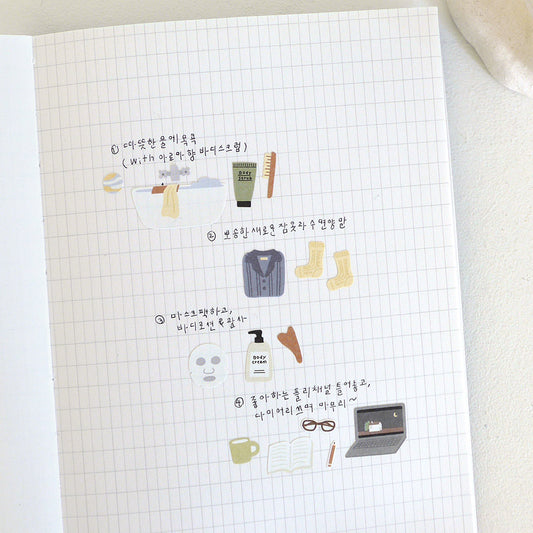 ① 따뜻한 물에 목욕
(with 아로마 향 바디스크럽)
BODY
Scrub
② 뽀송한 새로운 잠옷과 수면양말
③ 마스크팩하고,
바디로션 & 괄사
BODY
cream
④ 좋아하는 플리채널 틀어놓고,
다이어리 쓰며 마무리~